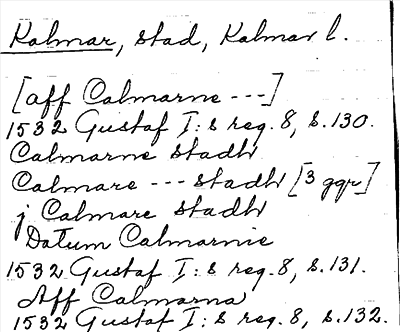 Kalmar, stad, Kalmar l.
[aff Calmarne ---]
1532 Gustaf I:s reg. 8, s. 130.
Calmarne stadh
Calmare --- stadh [3 ggr]
j Calmare stadh
Datum Calmarnie
1532 Gustaf I:s reg. 8, s. 131.
Aff Calmarna
1532 Gustaf I:s reg. 8, s. 132.